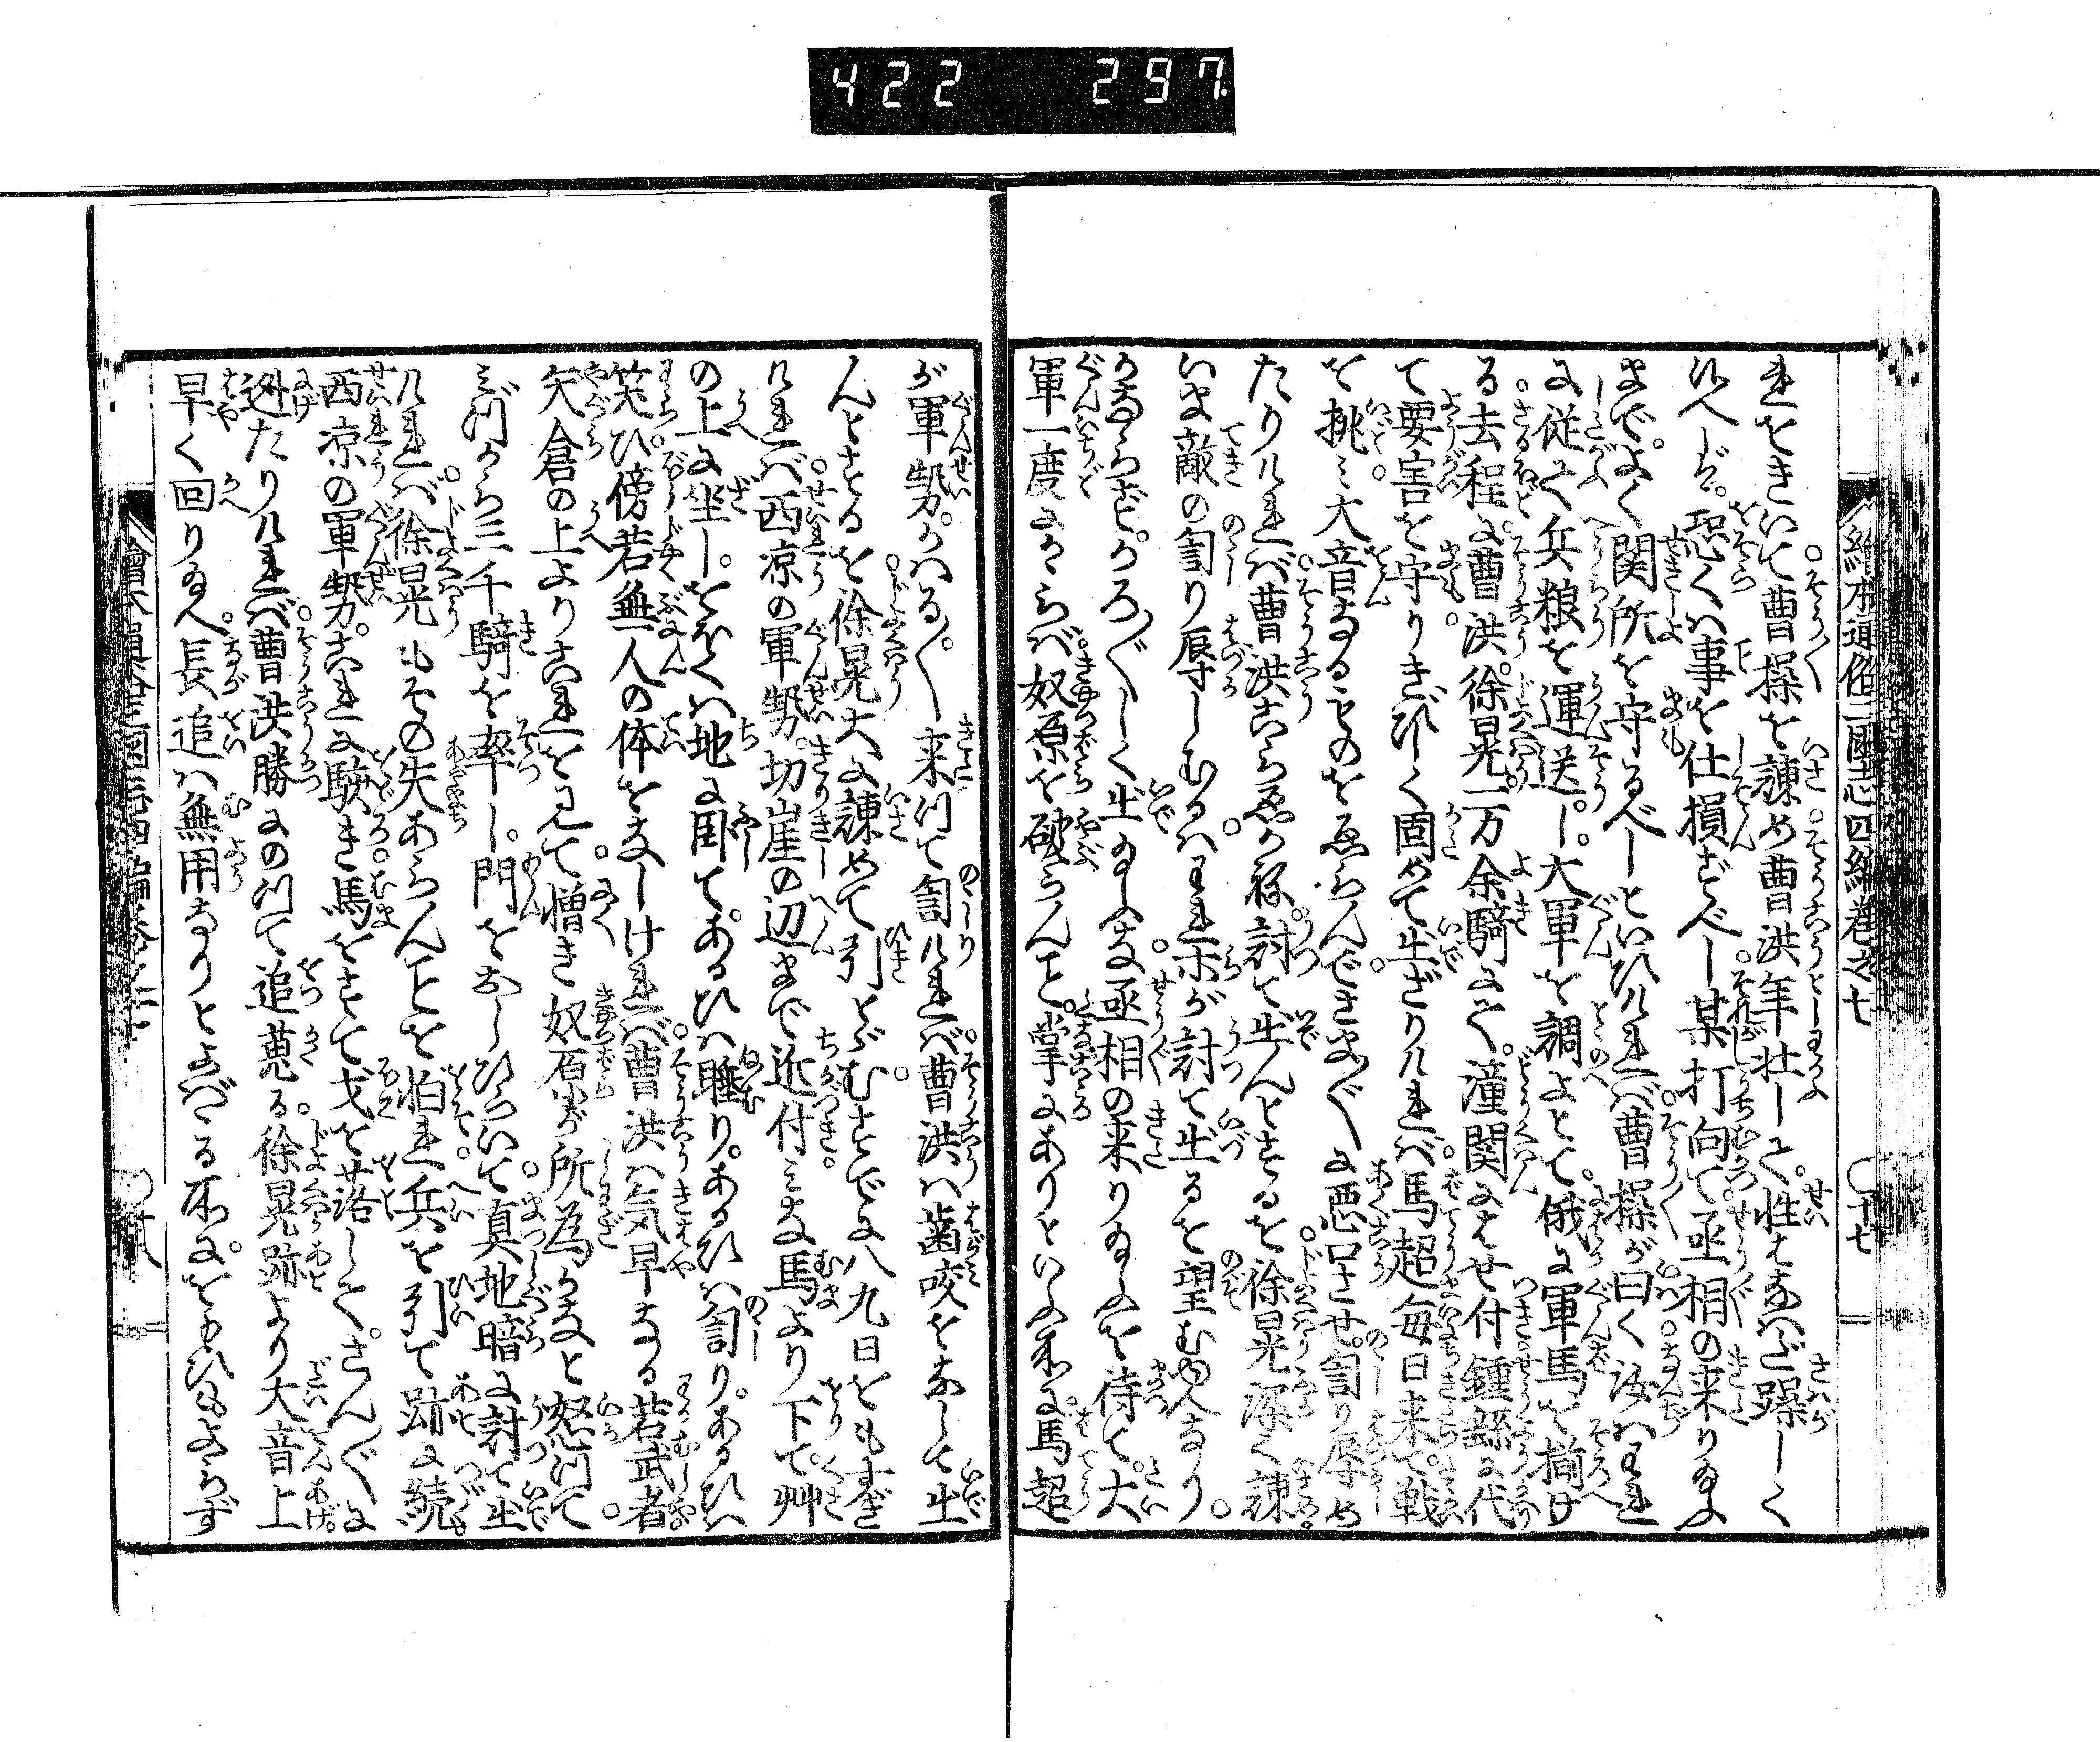 422 297
絵本通俗三國志四編巻之七 十七
れをきいて曹操を諌め曹洪年壮して性はなはだ躁しく
候へば恐くハ事を仕損ずべし某打向て丞相の来り玉ふ
までよく関所を守るべしといひければ曹操が曰く汝ハわれ
に従て兵粮を運送し大軍を調よとて俄に軍馬を揃け
る去程に曹洪徐晃一万余騎にて潼関にはせ付鍾繇に代
て要害を守りきびしく固めて出ざりければ馬超毎日来て戦
を挑ミ大音なるものをゑらんでさまざまに悪口させ罵り辱め
たりければ曹洪こらゑかね討て出んとするを徐晃深く諌
いま敵の罵り辱しむるハわれホが討て出るを望むゆへなり
かならずかろがろしく出玉ふな丞相の来り玉ふを待て大
軍一度にかゝらば奴原を破らんこと掌にありといふ所に馬超
が軍勢かハるがハる来つて罵ければ曹洪ハ歯咬をなして出
んとするを徐晃大に諌めて引とゞむすでに八九日をもすぎ
ければ西凉の軍勢切崖の辺まで近付ミな馬より下て艸
の上に坐しをほくハ地に臥てあるひハ睡りあるひハ罵りあるひハ
笑ひ傍若無人の体をなしければ曹洪ハ気早なる若武者
矢倉の上よりこれを見て憎き奴原が所為かなと怒つて
ミづから三千騎を率し門をおしひらいて真地暗に討て出
ければ徐晃もその失あらんことを怕れ兵を引て跡に続
西凉の軍勢これに駭き馬をすて戈を落してさんざんに
迯たりければ曹洪勝にのつて追蒐る徐晃跡より大音上
早く回り玉へ長追ハ無用なりとよばゝる所にをもひもよらず
繪本通俗三國志四編巻之七